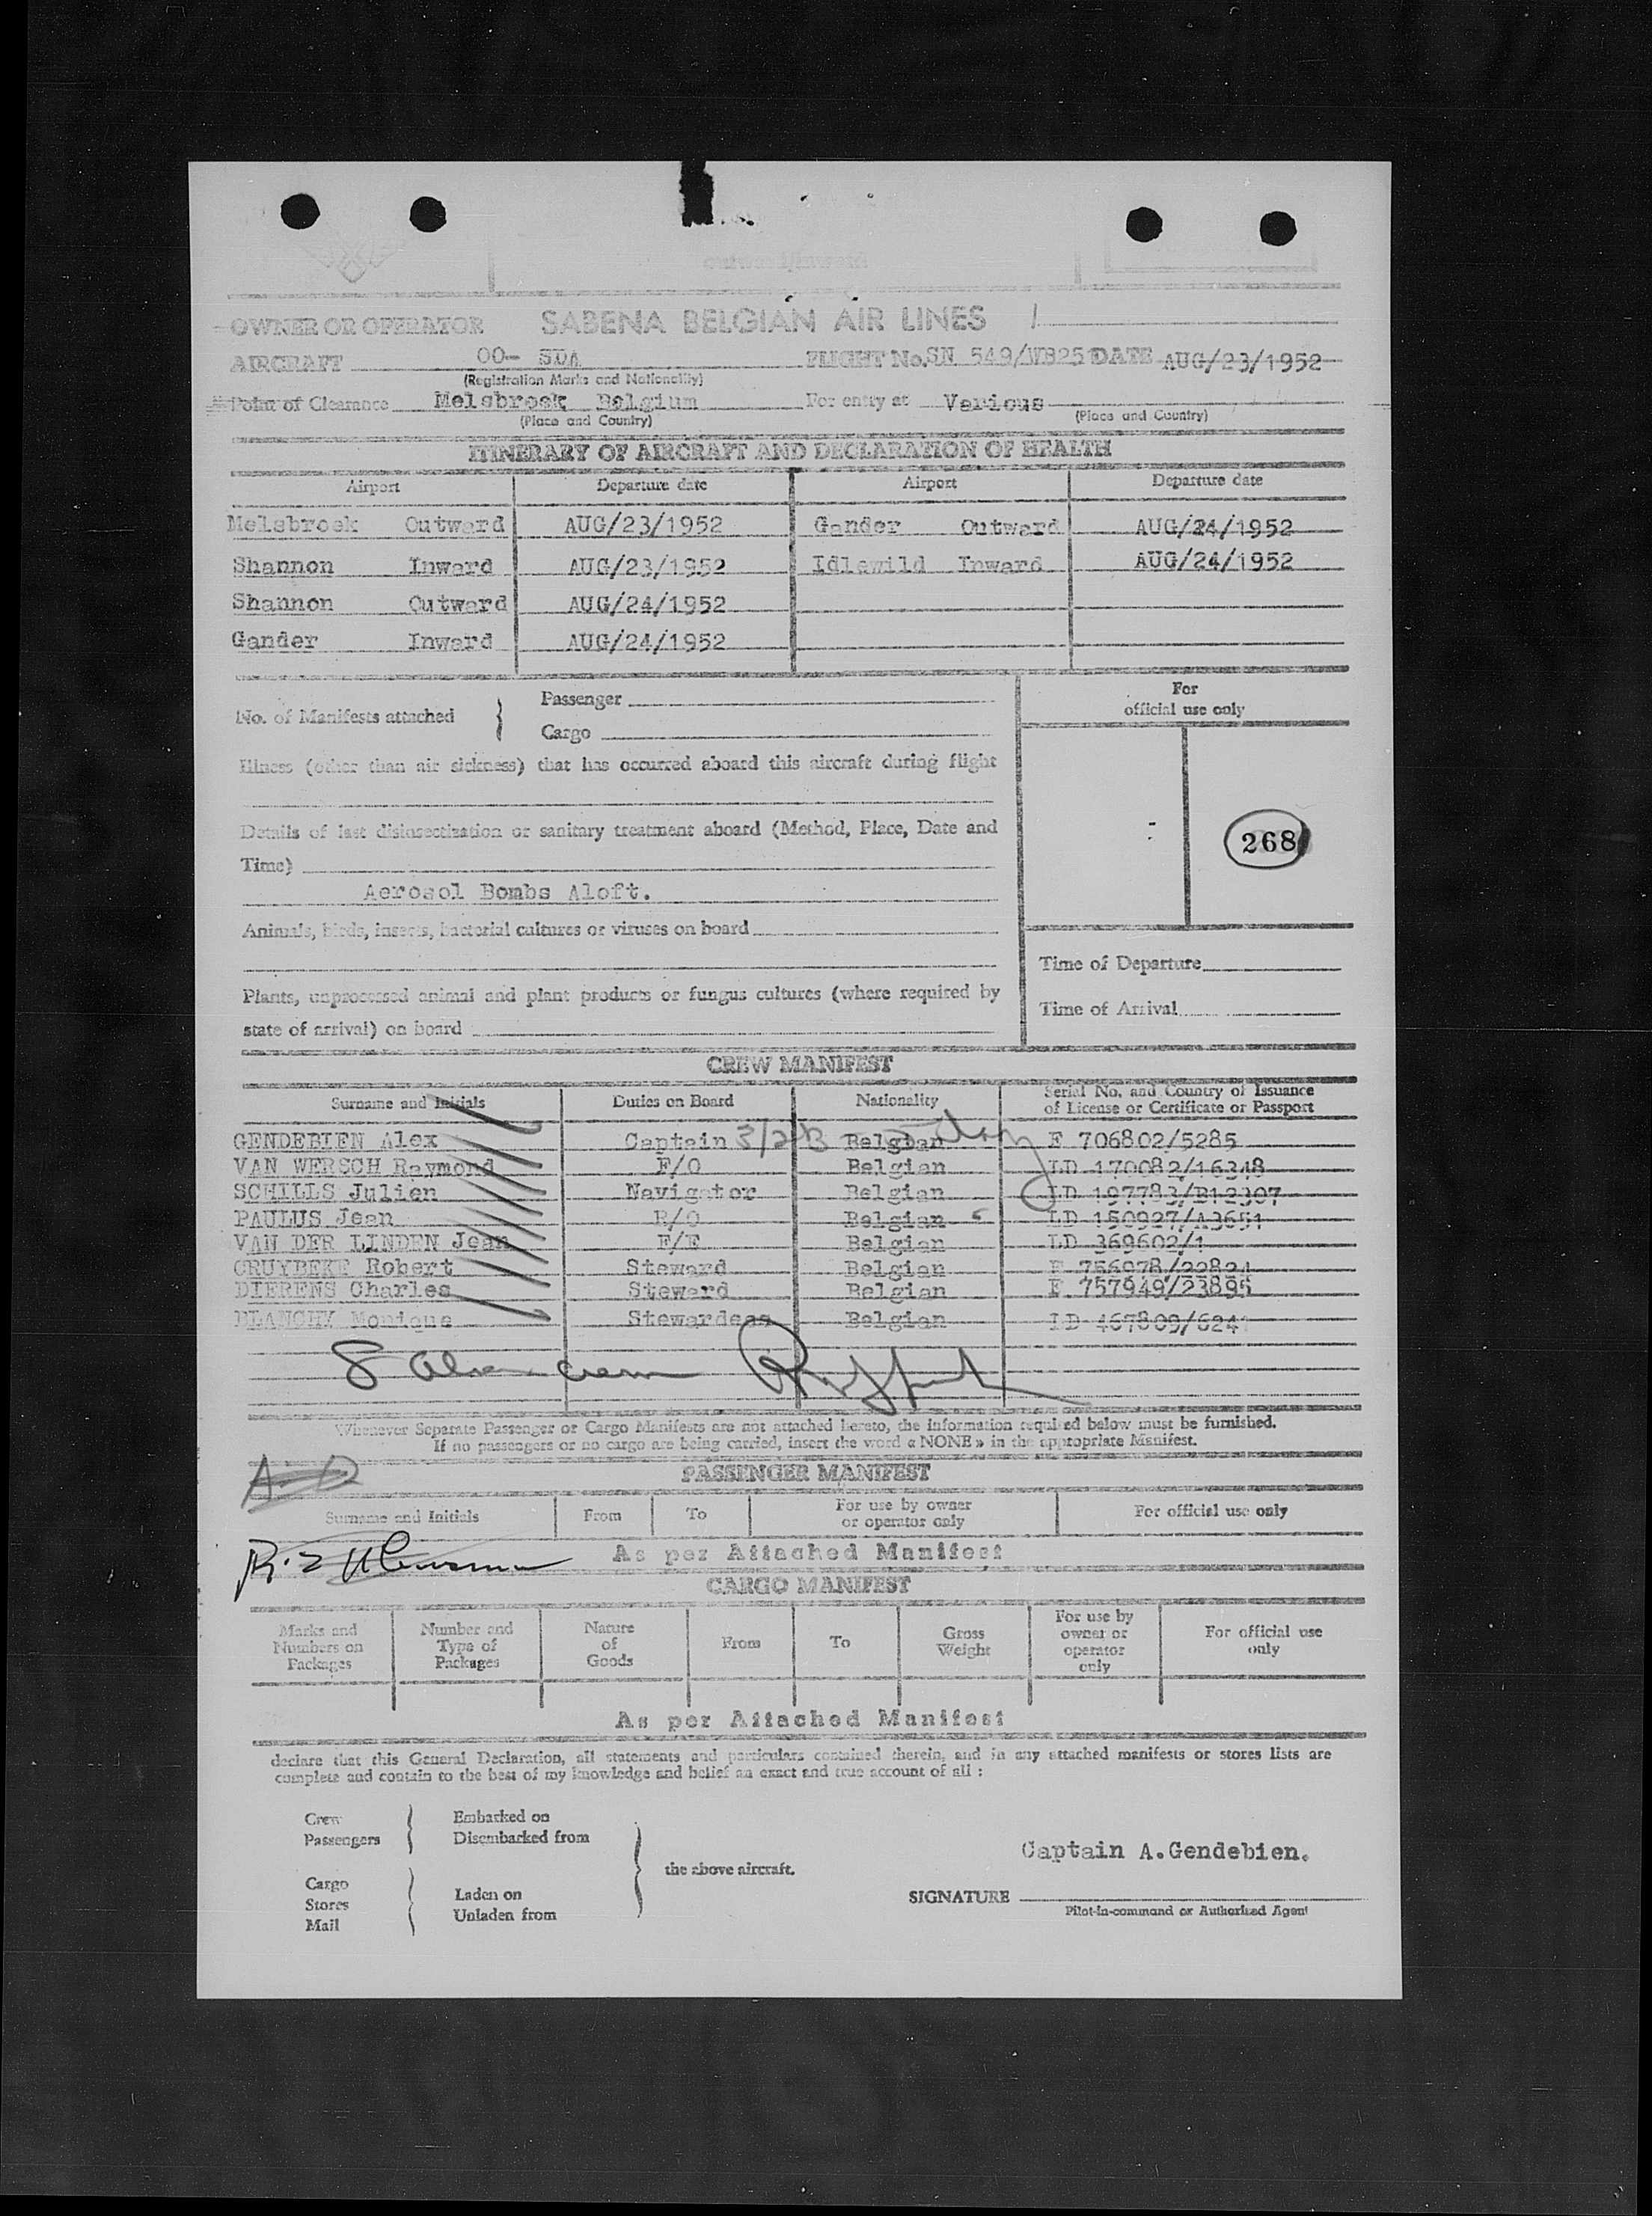 OWNER OR OPERATOR SABENA BELGIAN AIR LINES
AIRCRAFT OO- SDA FLIGHT No. SN 549/WB251 DATE AUG/23/1952
(Registration Marks and Nationality)
Point of Clearance Melsbroek Belgium For entry at Various
(Place and Country) (Place and Country)
ITINERARY OF AIRCRAFT AND DECLARATION OF HEALTH
Airport Departure date Airport Departure date
Melsbroek Outward AUG/23/1952 Gander Outward AUG/24/1952
Shannon Inward AUG/23/1952 Idlewild Inward AUG/24/1952
Shannon Outward AUG/24/1952
Gander Inward AUG/24/1952
No. of Manifests attached
Passenger
Cargo
For
official use only
Illness (other than air sickness) that has occurred aboard this aircraft during flight
Details of last disinsectization or sanitary treatment aboard (Method, Place, Date and
Time)
268
Aerosol Bombs Aloft.
Animals, birds, insects, bacterial cultures or viruses on board
Time of Departure
Plants, unprocessed animal and plant products or fungus cultures (where required by
state of arrival) on board
Time of Arrival
CREW MANIFEST
Surname and Initials Duties on Board Nationality Serial No. and Country of Issuance
of License or Certificate or Passport
GENDEBIEN Alex Captain Belgian F 706802/5285
VAN WERSCH Raymond F/O Belgian LD 170082/16348
SCHILLS Julien Navigator Belgian LD 197783/B12307
PAULUS Jean R/O Belgian LD 150927/A3651
VAN DER LINDEN Jean F/E Belgian LD 369602/1
CRUYBEKE Robert Steward Belgian F 756978/22824
DIERENS Charles Steward Belgian F 757949/23895
BLANCHY Monique Stewardess Belgian LD 467809/6241
8 crew
Whenever Separate Passenger or Cargo Manifests are not attached hereto, the information required below must be furnished.
If no passengers or no cargo are being carried, insert the word « NONE » in the appropriate Manifest.
PASSENGER MANIFEST
Surname and Initials From To For use by owner
or operator only For official use only
As per Attached Manifest
CARGO MANIFEST
Marks and
Numbers on
Packages
Number and
Type of
Packages
Nature
of
Goods
From
To
Gross
Weight
For use by
owner or
operator
only
For official use
only
As per Attached Manifest
declare that this General Declaration, all statements and particulars contained therein, and in any attached manifests or stores lists are
complete and contain to the best of my knowledge and belief an exact and true account of all :
Crew
Passengers
Embarked on
Disembarked from
Cargo
Stores
Mail
Laden on
Unladen from
the above aircraft.
Captain A.Gendebien.
SIGNATURE
Pilot-in-command or Authorized Agent